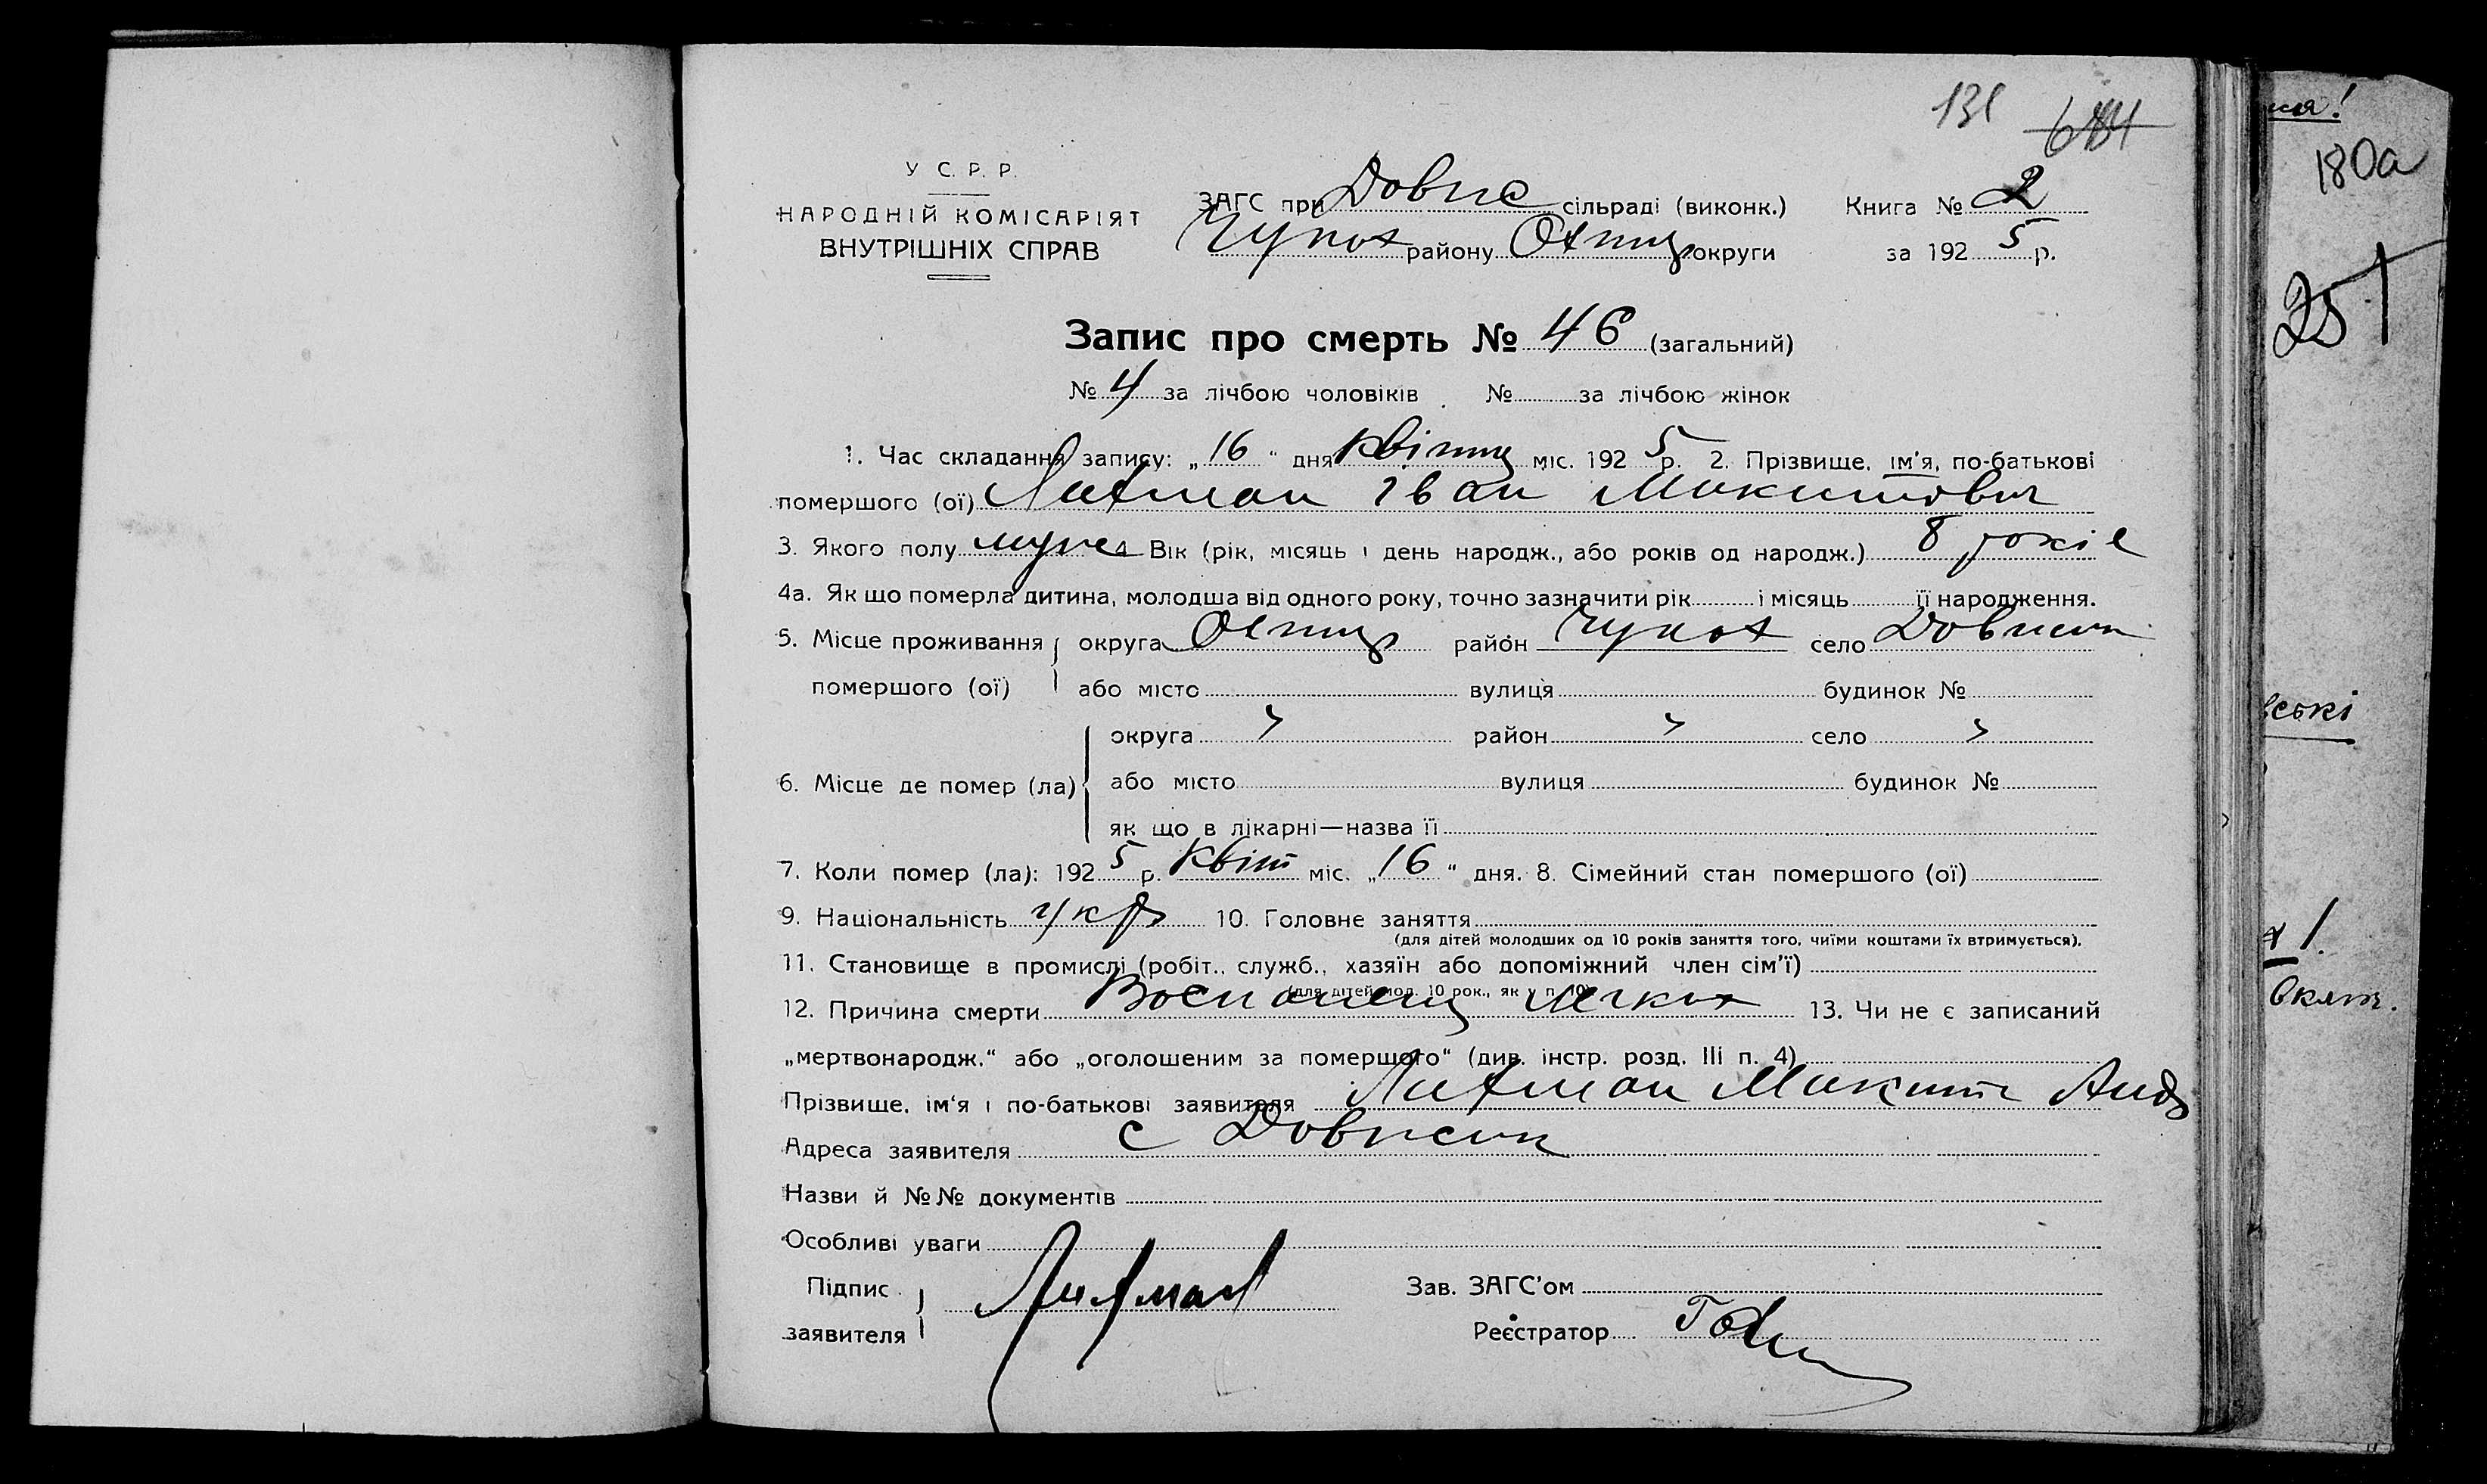 131 684
У С. Р. Р.
НАРОДНІЙ КОМІСАРІЯТ
ВНУТРІШНІХ СПРАВ
ЗАГС при Довпс сільраді (виконк.) Книга № 2
Чупох району Охтир округи за 192 5 р.
Запис про смерть № 46 (загальний)
№ 4 за лічбою чоловіків № за лічбою жінок
1. Час складання запису: „ 16 “ дня квітня міс. 192 5 р. 2. Прізвище, ім'я, по-батькові
помершого (ої) Лахман Іван Микитович
3. Якого полу муже 4 Вік (рік, місяць і день народж., або років од народж.) 8 років
4а. Як що померла дитина, молодша від одного року, точно зазначити рік і місяць її народження.
5. Місце проживання округа Охтир район Чупох село
помершого (ої) або місто вулиця будинок №
округа район село
6. Місце де помер (ла) або місто вулиця будинок №
як що в лікарні—назва її
7. Коли помер (ла): 192 5 р. Квіт міс. „ 16 “ дня. 8. Сімейний стан помершого (ої)
9. Національність укр 10. Головне заняття
(для дітей молодших од 10 років заняття того, чиїми коштами їх втримується).
11. Становище в промислі (робіт., служб., хазяїн або допоміжний член сім'ї)
(для дітей мол. 10 рок., як у п. 10)
12. Причина смерти легких 13. Чи не є записаний
„мертвонародж.“ або „оголошеним за помершого“ (див. інстр. розд. III п. 4)
Прізвище, ім'я і по-батькові заявителя Лахман Микита Анд
Адреса заявителя с
Назви й №№ документів
Особливі уваги
Підпис Зав. ЗАГС'ом
заявителя Лахман Реєстратор
180а
251